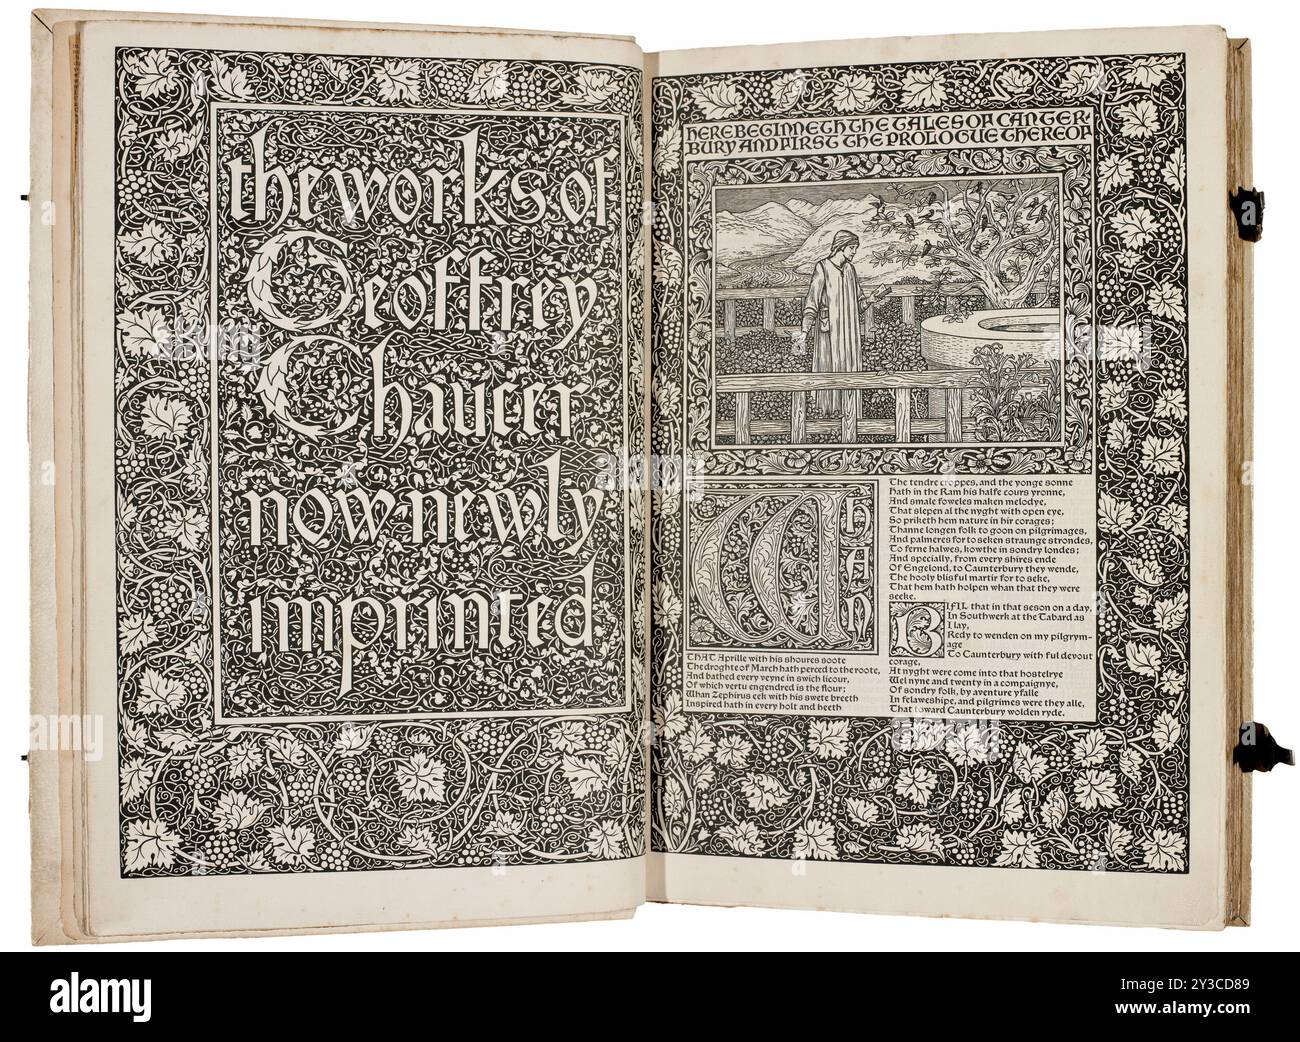 the works of
Geoffrey
Chaucer
now newly
imprinted
HERE BEGINNETH THE TALES OF CANTER-
BURY AND FIRST THE PROLOGUE THEREOF
WHAN
THAT Aprille with his shoures soote
The droghte of March hath perced to the roote,
And bathed every veyne in swich licour,
Of which vertu engendred is the flour;
Whan Zephirus eek with his swete breeth
Inspired hath in every holt and heeth
The tendre croppes, and the yonge sonne
Hath in the Ram his halfe cours yronne,
And smale foweles maken melodye,
That slepen al the nyght with open eye,
So priketh hem nature in hir corages;
Thanne longen folk to goon on pilgrimages,
And palmeres for to seken straunge strondes,
To ferne halwes, kowthe in sondry londes;
And specially, from every shires ende
Of Engelond, to Caunterbury they wende,
The hooly blisful martir for to seke,
That hem hath holpen whan that they were
seeke.
BIFIL that in that seson on a day,
In Southwerk at the Tabard as
I lay,
Redy to wenden on my pilgrym-
age
To Caunterbury with ful devout
corage,
At nyght were come into that hostelrye
Wel nyne and twenty in a compaignye,
Of sondry folk, by aventure yfalle
In felaweshipe, and pilgrimes were they alle,
That toward Caunterbury wolden ryde.
a
alamy
Image ID: 2Y3CD89
www.alamy.com